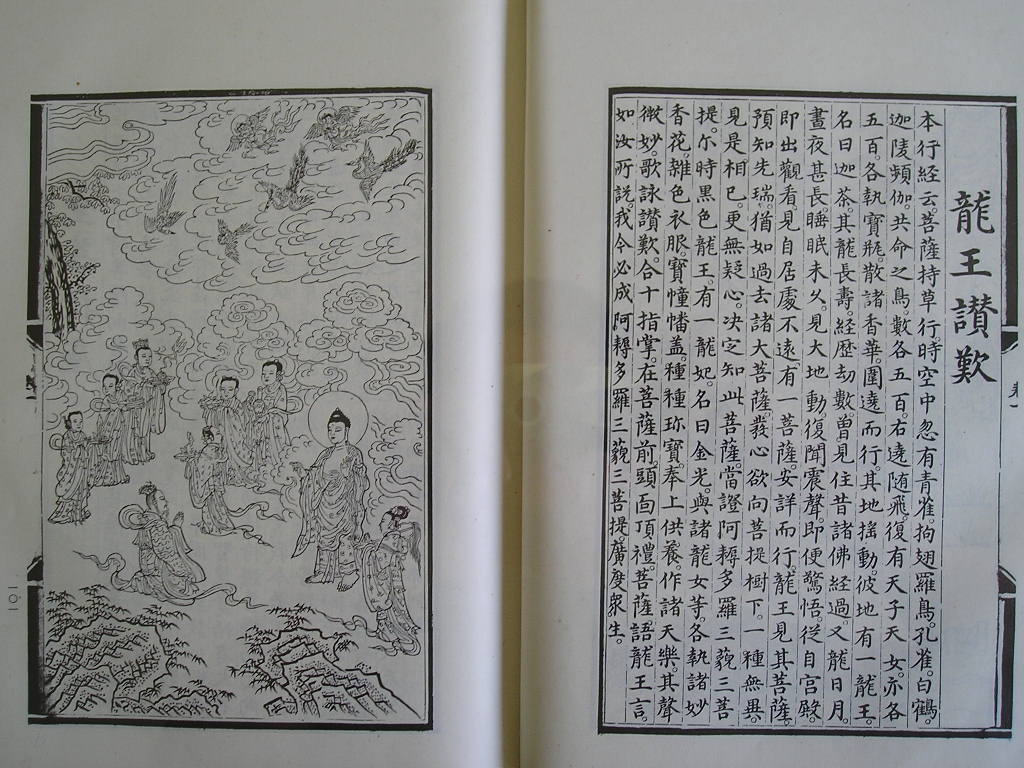 龍王讃歎
本行經云菩薩持草行時空中忽有青雀。拘翅羅鳥。孔雀。白鶴。
迦陵頻伽。共命之鳥。數各五百。右遶随飛。復有天子天女。亦各
五百。各執寶瓶。散諸香華。圍遶而行。其地摇動。彼地有一龍王。
名曰迦茶。其龍長壽。經歴劫數。曽見往昔諸佛經過。又龍日月。
晝夜甚長。睡眠未久。見大地動。復聞震聲。即便驚悟。從自宫殿。
即出觀看。見自居處不遠。有一菩薩。安詳而行。龍王見其菩薩。
預知先瑞。猶如過去諸大菩薩。發心欲向菩提樹下。一種無異。
見是相巳。更無疑心。决定知此菩薩。當證阿耨多羅三藐三菩
提。尓時黒色龍王。有一龍妃。名曰金光。與諸龍女等。各執諸妙
香花。雜色衣服。寳幢幡盖。種種珎寳。奉上供養。作諸天樂。其聲
微妙。歌詠讃歎。合十指掌。在菩薩前。頭面頂禮。菩薩語龍王言。
如汝所説。我今必成阿耨多羅三藐三菩提。廣度衆生。
卷一
101